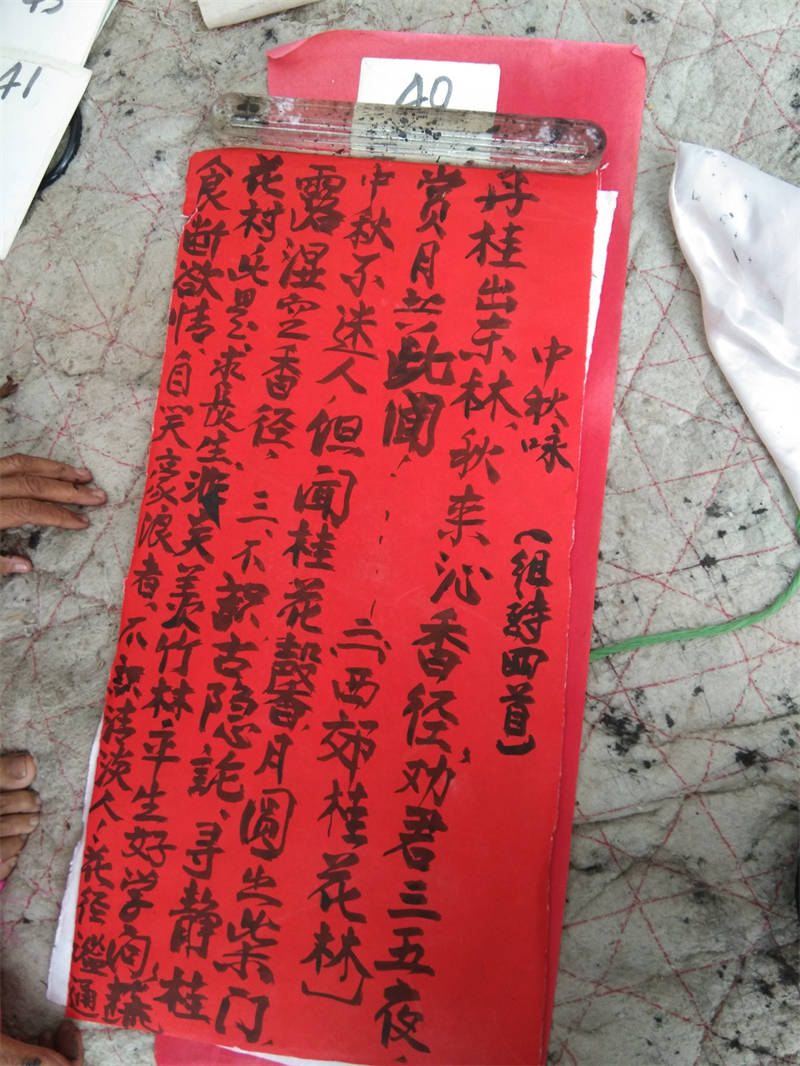 41
40
中秋咏
（组诗四首）
丹桂出东林、秋来沁香径，劝君三五夜，
赏月共此间，二、西郊桂花林）
中秋不迷人，但闻桂花馨香，月圆照柴门，
露湿空香径，三、不识古隐詑、寻静桂
花村此景求长生、羡竹林平生好学问，
食断欲情、自笑豪浪者、不识清淡人、花径溢通